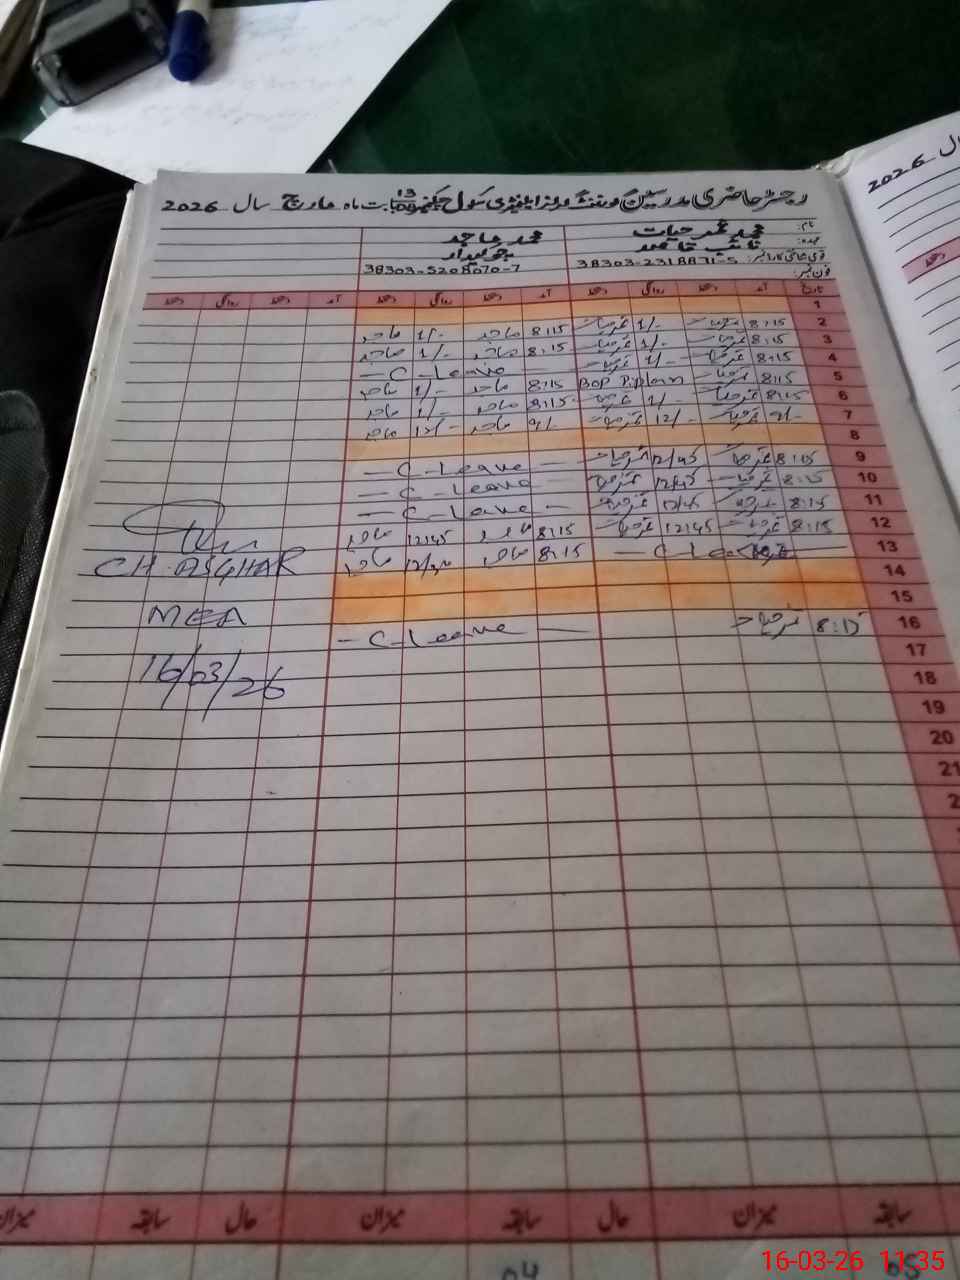 رجسٹر حاضری مدرسین گورنمنٹ گرلز ایلیمنٹری سکول چک نمبر 13 بابت ماہ مارچ سال 2026
نام: محمد عمر حیات محمد ماجد
عہدہ: نائب قاصد چوکیدار
قومی شناختی کارڈ نمبر: 38303-2318871-5 38303-5208070-7
فون نمبر:
تاریخ آمد دستخط روانگی دستخط آمد دستخط روانگی دستخط آمد دستخط روانگی دستخط
1
2 8:15 عمر حیات 1/- عمر حیات 8:15 ماجد 1/- ماجد
3 8:15 عمر حیات 1/- عمر حیات 8:15 ماجد 1/- ماجد
4 8:15 عمر حیات 1/- عمر حیات — C-Leave —
5 8:15 عمر حیات BOP 8:15 ماجد 1/- ماجد
6 8:15 عمر حیات 1/- عمر حیات 8:15 ماجد 1/- ماجد
7 9/- عمر حیات 12/- عمر حیات 9/- ماجد 12/- ماجد
8
9 8:15 عمر حیات 12/45 عمر حیات — C-Leave —
10 8:15 عمر حیات 12/45 عمر حیات — C-Leave —
11 8:15 عمر حیات 12/45 عمر حیات — C-Leave —
12 8:15 عمر حیات 12145 عمر حیات 8:15 ماجد 12145 ماجد
13 — C Leave — 8:15 ماجد ماجد
14
15
16 8:15 عمر حیات — C-Leave —
17
18
19
20
21
CH. ASGHAR
MEA
16/03/26
سابقہ میزان حال سابقہ میزان حال سابقہ میزان
04
05
سال 2026
دستخط
16-03-26 11:35